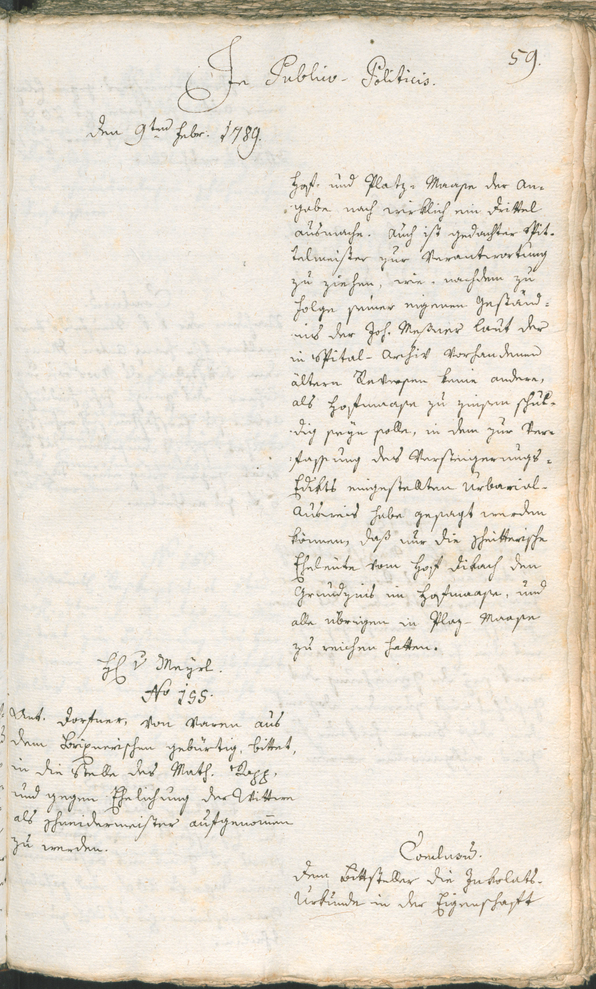 59.
In Publico-Politicis.
den 9ten Febr. 1789.
Hof- und Platz-Maase der An-
gabe nach wirklich ein drittel
ausmache. Auch ist gedachter Spit-
telmeister zur Verantwortung
zu ziehen, wie nachdem zu
Folge seiner eigenen Geständ-
nis der Joh. Meßner laut der
in Spital-Archiv vorhandenen
ältern Reversen keine andere,
als Hofmaase zu zinsen schul-
dig seyn solle, in dem zur Ver-
fassung des Versteigerungs-
Edikts eingestellten Urbarial-
Ausweis habe gesagt werden
können, daß nur die
Eheleute vom Hof den
Grundzins im Hofmaase, und
alle übrigen in Plaz-Maase
zu reichen hatten.
H. v Meyrl.
No 155.
Ant. Dorfner, von Varen aus
dem Brixnerischen gebürtig, bittet,
in die Stelle des Math. Rapp,
und gegen Ehelichung der Wittwe
als Schneidermeister aufgenommen
zu werden.
Conclusum.
Dem Bittsteller die Inkolats-
Urkunde in der Eigenschaft